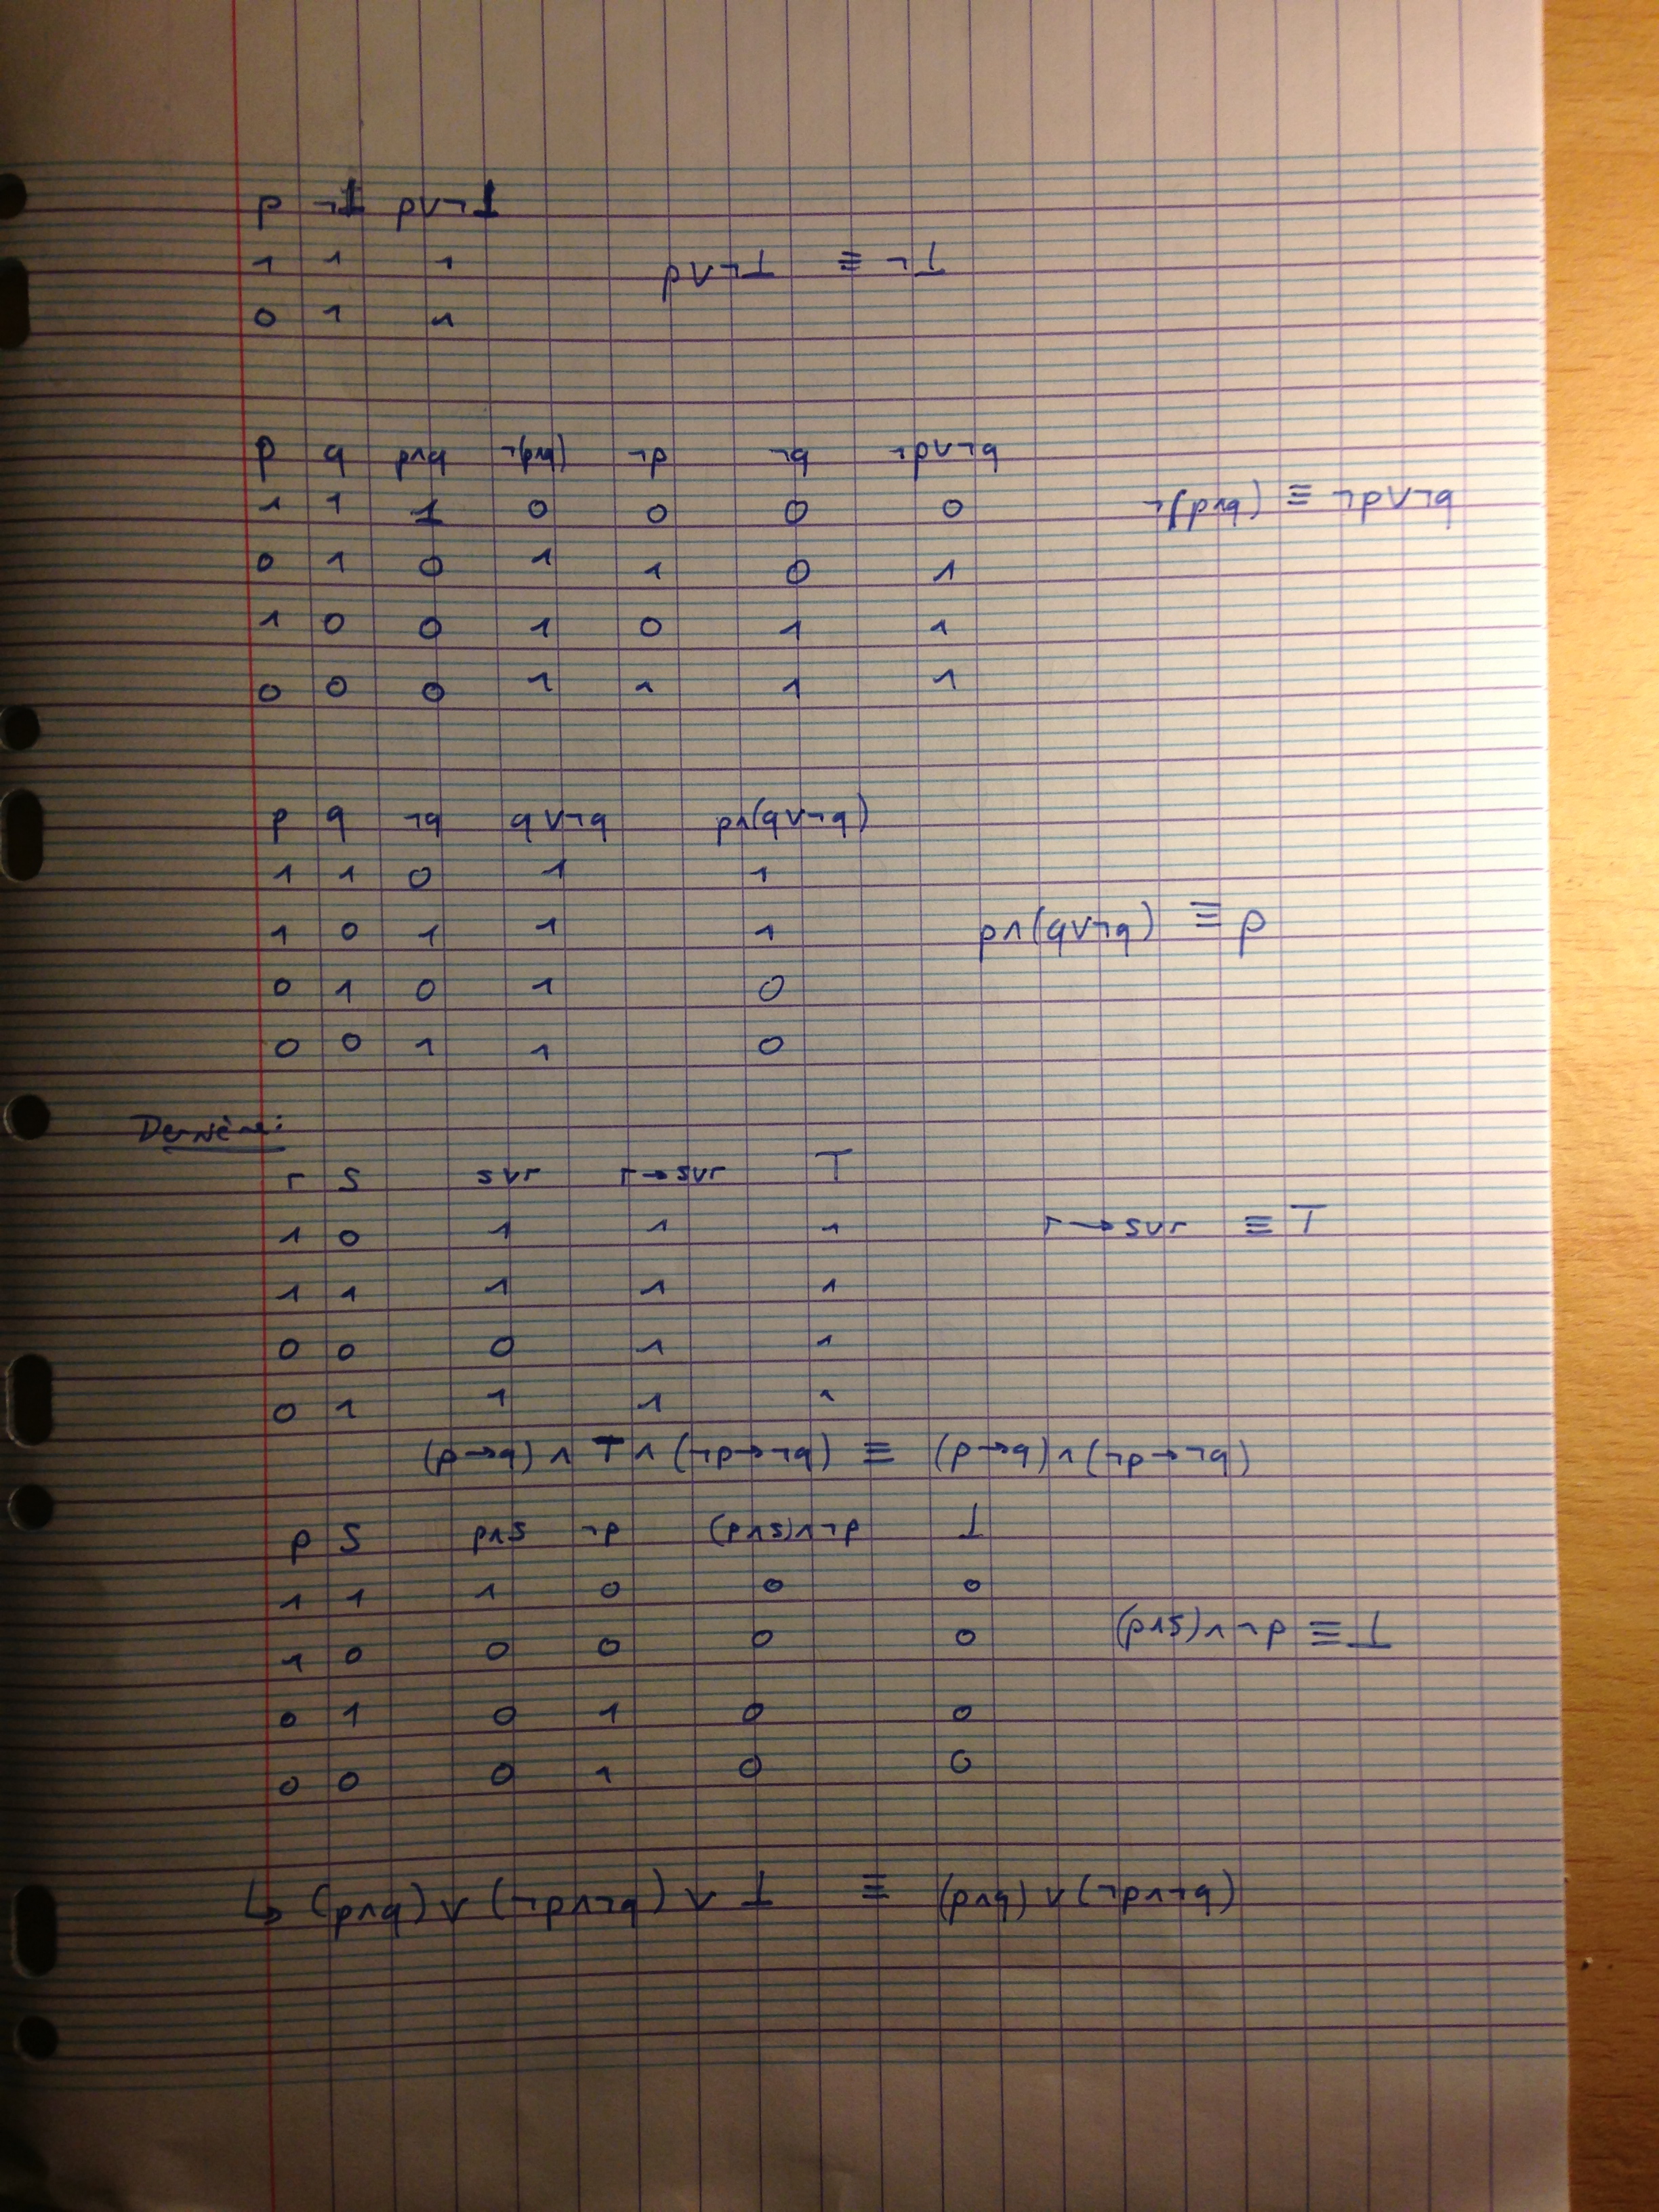 p ¬⊥ p∨¬⊥
1 1 1 p∨¬⊥ ≡ ¬⊥
0 1 1
p q p∧q ¬(p∧q) ¬p ¬q ¬p∨¬q
1 1 1 0 0 0 0 ¬(p∧q) ≡ ¬p∨¬q
0 1 0 1 1 0 1
1 0 0 1 0 1 1
0 0 0 1 1 1 1
p q ¬q q∨¬q p∧(q∨¬q)
1 1 0 1 1
1 0 1 1 1 p∧(q∨¬q) ≡ p
0 1 0 1 0
0 0 1 1 0
Dernière:
r s s∨r r→s∨r T
1 0 1 1 1 r→s∨r ≡ T
1 1 1 1 1
0 0 0 1 1
0 1 1 1 1
(p→q) ∧ T ∧ (¬p→¬q) ≡ (p→q)∧(¬p→¬q)
p s p∧s ¬p (p∧s)∧¬p ⊥
1 1 1 0 0 0
1 0 0 0 0 0 (p∧s)∧¬p ≡ ⊥
0 1 0 1 0 0
0 0 0 1 0 0
↳ (p∧q) ∨ (¬p∧¬q) ∨ ⊥ ≡ (p∧q) ∨ (¬p∧¬q)